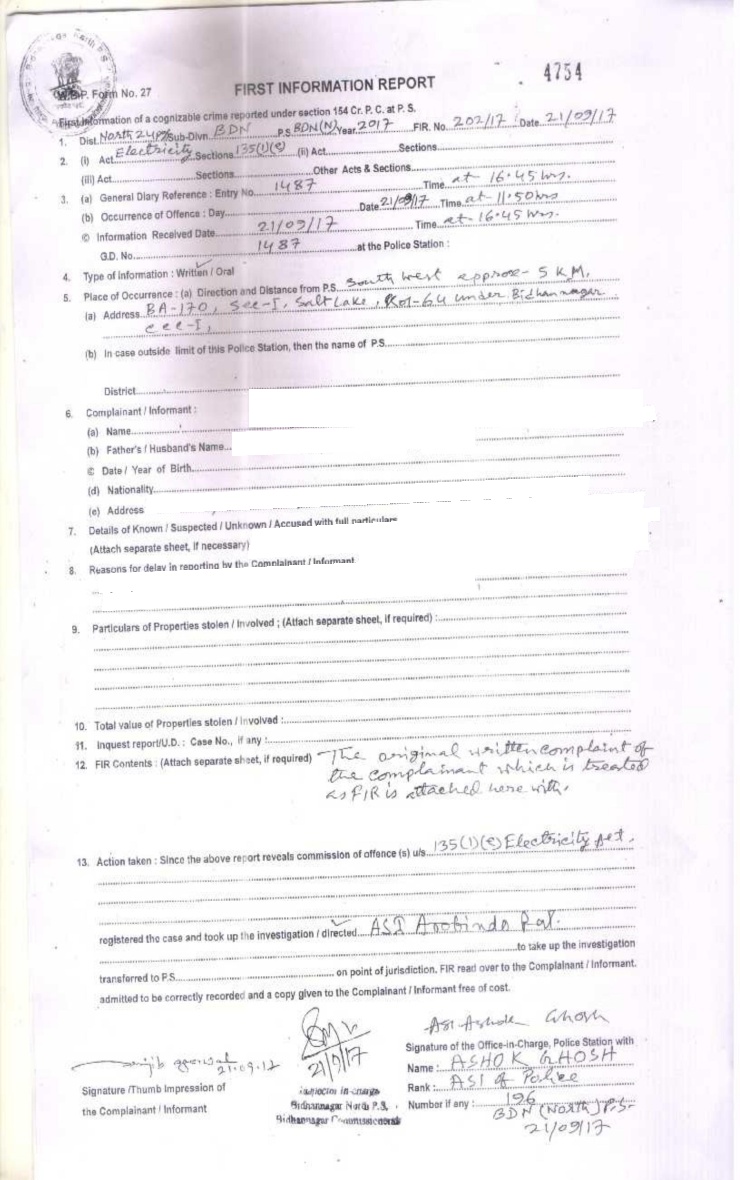 4754
W.B.P. Form No. 27
FIRST INFORMATION REPORT
First Information of a cognizable crime reported under section 154 Cr. P. C. at P. S.
1. Dist. North 24 Pgs Sub-Divn. BDN P.S. BDN(N) Year 2017 FIR. No. 202/17 Date 21/09/17
2. (i) Act Electricity Sections 135(1)(e) (ii) Act Sections
(iii) Act Sections Other Acts & Sections
3. (a) General Diary Reference : Entry No. 1487 Time at 16.45 hrs.
(b) Occurrence of Offence : Day Date 21/09/17 Time at 11.50 hrs
© Information Received Date 21/09/17 Time at 16.45 hrs.
G.D. No. 1487 at the Police Station :
4. Type of information : Written / Oral
5. Place of Occurrence : (a) Direction and Distance from P.S. South West approx - 5 KM,
(a) Address BA-170, Sec-I, Salt Lake, Kol-64 under Bidhannagar
ccc-I,
(b) In case outside limit of this Police Station, then the name of P.S.
District
6. Complainant / Informant :
(a) Name
(b) Father's / Husband's Name
© Date / Year of Birth
(d) Nationality
(e) Address
7. Details of Known / Suspected / Unknown / Accused with full particulars
(Attach separate sheet, if necessary)
8. Reasons for delay in reporting by the Complainant / Informant
9. Particulars of Properties stolen / Involved ; (Attach separate sheet, if required) :
10. Total value of Properties stolen / Involved :
11. Inquest report/U.D. : Case No., if any :
12. FIR Contents : (Attach separate sheet, if required) The original written complaint of
the complainant which is treated
as FIR is attached here with.
13. Action taken : Since the above report reveals commission of offence (s) u/s 135(1)(e) Electricity Act.
registered the case and took up the investigation / directed ASI Arobindo
to take up the investigation
transferred to P.S. on point of jurisdiction, FIR read over to the Complainant / Informant.
admitted to be correctly recorded and a copy given to the Complainant / Informant free of cost.
ASI Ashok Ghosh
21.09.17
21/9/17
Signature of the Office-in-Charge, Police Station with
Name : ASHOK GHOSH
Rank : ASI of Police
Number if any : 196
BDN (North) P.S.
21/09/17
Signature /Thumb Impression of
the Complainant / Informant
Inspector in-charge
Bidhannagar North P.S,
Bidhannagar Commissionerate